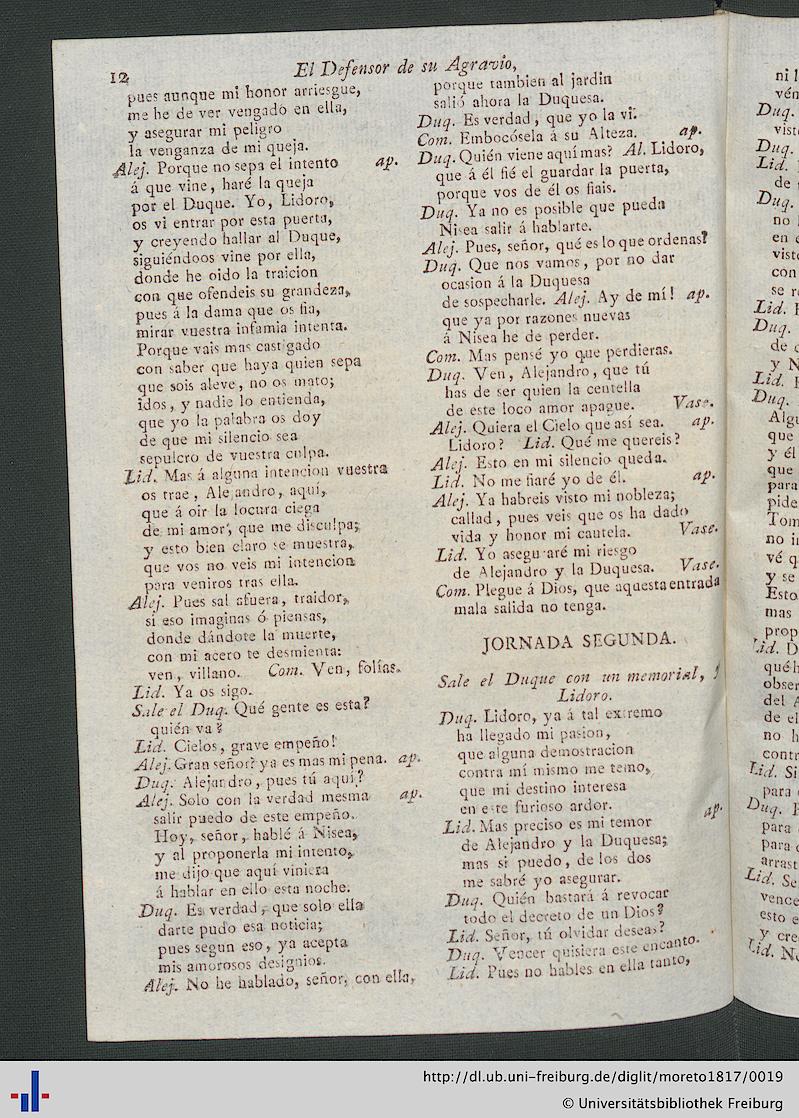 12
El Defensor de su Agravio,
pues aunque mi honor arriesgue,
me he de ver vengado en ella,
y asegurar mi peligro
la venganza de mi queja.
Alej. Porque no sepa el intento ap.
á que vine, haré la queja
por el Duque. Yo, Lidoro,
os vi entrar por esta puerta,
y creyendo hallar al Duque,
siguiéndoos vine por ella,
donde he oido la traicion
con que ofendeis su grandeza,
pues á la dama que os fia,
mirar vuestra infamia intenta.
Porque vais mas castigado
con saber que haya quien sepa
que sois aleve, no os mato;
idos, y nadie lo entienda,
que yo la palabra os doy
de que mi silencio sea
sepulcro de vuestra culpa.
Lid. Mas á alguna intencion vuestra
os trae, Alejandro, aquí,
que á oir la locura ciega
de mi amor, que me disculpa;
y esto bien claro se muestra,
que vos no veis mi intencion
para veniros tras ella.
Alej. Pues sal afuera, traidor,
si eso imaginas ó piensas,
donde dándote la muerte,
con mi acero te desmienta:
ven, villano. Com. Ven, folías.
Lid. Ya os sigo.
Sale el Duq. Qué gente es esta?
quién va?
Lid. Cielos, grave empeño!
Alej. Gran señor? ya es mas mi pena. ap.
Duq. Alejandro, pues tú aquí?
Alej. Solo con la verdad mesma ap.
salir puedo de este empeño.
Hoy, señor, hablé á Nisea,
y al proponerla mi intento,
me dijo que aquí viniera
á hablar en ello esta noche.
Duq. Es verdad, que solo ella
darte pudo esa noticia;
pues segun eso, ya acepta
mis amorosos designios.
Alej. No he hablado, señor, con ella,
porque tambien al jardin
salió ahora la Duquesa.
Duq. Es verdad, que yo la vi.
Com. Embocósela á su Alteza. ap.
Duq. Quién viene aquí mas? Al. Lidoro,
que á él fié el guardar la puerta,
porque vos de él os fiais.
Duq. Ya no es posible que pueda
Nisea salir á hablarte.
Alej. Pues, señor, qué es lo que ordenas?
Duq. Que nos vamos, por no dar
ocasion á la Duquesa
de sospecharle. Alej. Ay de mí! ap.
que ya por razones nuevas
á Nisea he de perder.
Com. Mas pensé yo que perdieras.
Duq. Ven, Alejandro, que tú
has de ser quien la centella
de este loco amor apague. Vase.
Alej. Quiera el Cielo que así sea. ap.
Lidoro? Lid. Qué me quereis?
Alej. Esto en mi silencio queda.
Lid. No me fiaré yo de él. ap.
Alej. Ya habreis visto mi nobleza;
callad, pues veis que os ha dado
vida y honor mi cautela. Vase.
Lid. Yo aseguraré mi riesgo
de Alejandro y la Duquesa. Vase.
Com. Plegue á Dios, que aquesta entrada
mala salida no tenga.
JORNADA SEGUNDA.
Sale el Duque con un memorial, y
Lidoro.
Duq. Lidoro, ya á tal extremo
ha llegado mi pasion,
que alguna demostracion
contra mí mismo me temo,
que mi destino interesa
en este furioso ardor. ap.
Lid. Mas preciso es mi temor
de Alejandro y la Duquesa;
mas si puedo, de los dos
me sabré yo asegurar.
Duq. Quién bastará á revocar
todo el decreto de un Dios?
Lid. Señor, tú olvidar deseas?
Duq. Vencer quisiera este encanto.
Lid. Pues no hables en ella tanto,
ni
Duq.
Duq.
Lid.
de
Duq.
no
en
con
se
Lid.
Duq.
de
y N
Lid.
Duq.
que
y él
que
para
pide
no
vé q
y se
Esto
mas
prop
Lid. D
qué h
obser
del A
de el
no h
contr
Lid. Si
para
Duq.
para
para
arrast
Lid. Se
vence
esto e
y cre
Lid. No
http://dl.ub.uni-freiburg.de/diglit/moreto1817/0019
© Universitätsbibliothek Freiburg